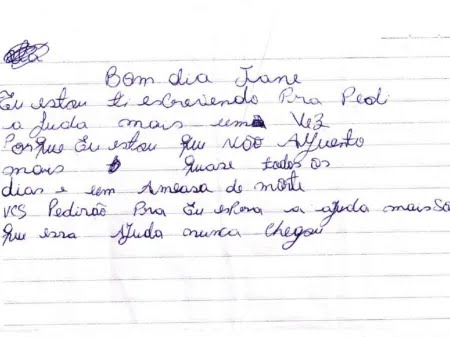 Bom dia Jane
Eu estou ti escrevendo Pra Pedi
a Juda mais uma Vez
Porque Eu estou que não Aguento
mais quase todos os
dias e um Ameasa de morte
VCS Pedirão Pra Eu espera a ajuda mais Só
que essa Ajuda nunca chegou